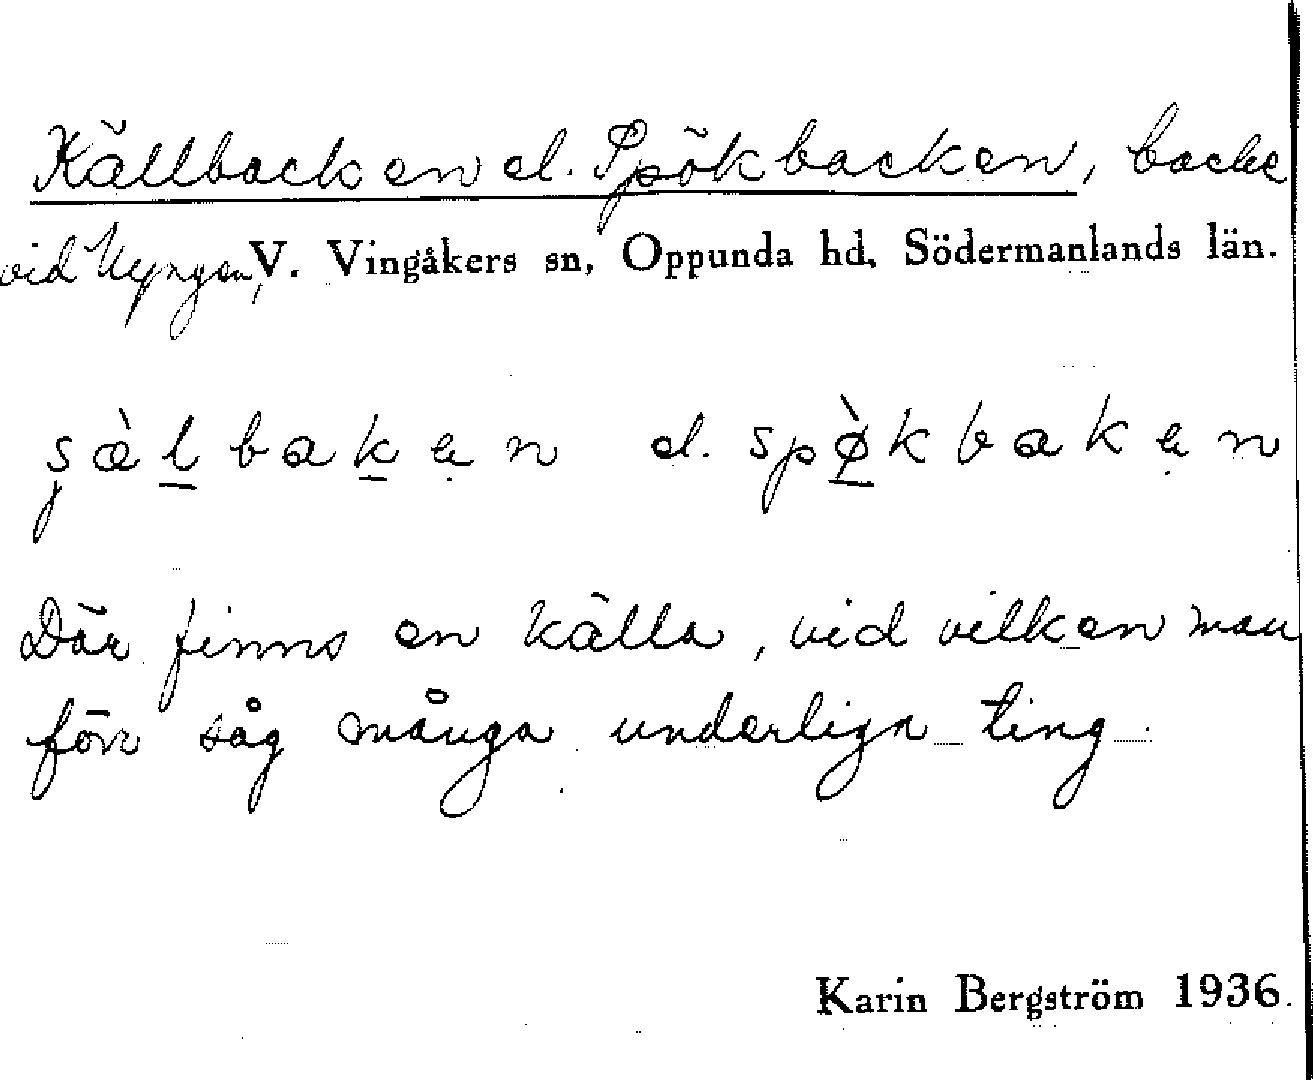 Källbacken el. Spökbacken, backe
vid Kyngen, V. Vingåkers sn, Oppunda hd, Södermanlands län.
şæ̀lbakęn el. spø̀kbakęn
Där finns en källa, vid vilken man
förr såg många underliga ting.
Karin Bergström 1936.